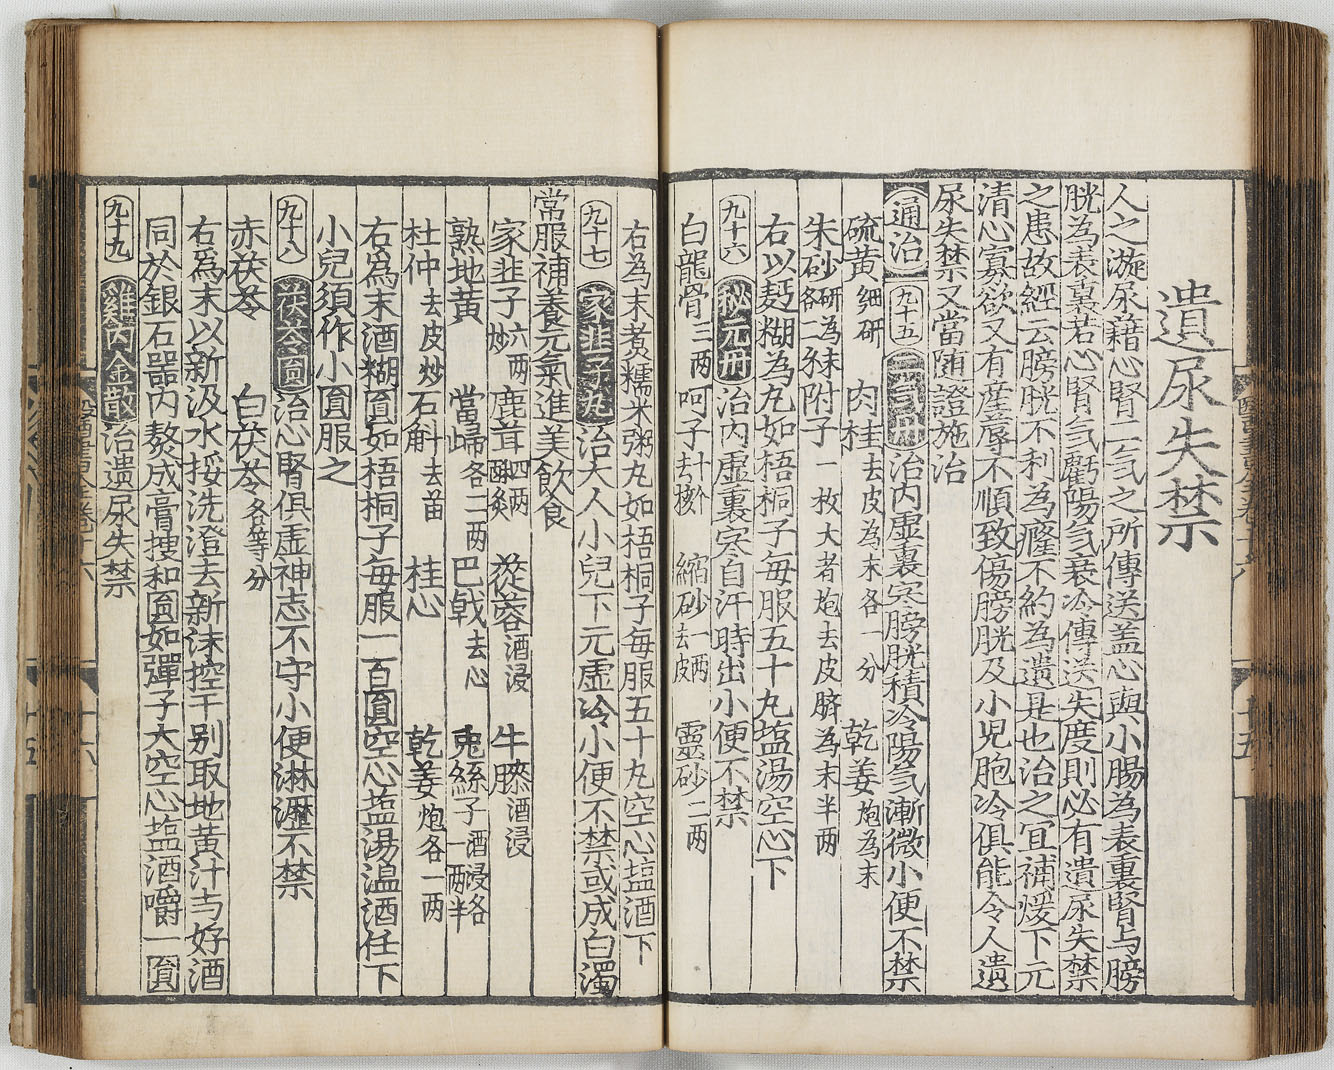 遺尿失禁
人之漩尿藉心腎二气之所傳送盖心與小腸為表裏腎与膀
胱為表裏若心腎气虧陽气衰冷傳送失度則必有遺尿失禁
之患故經云膀胱不利為癃不約為遺是也治之宜補煖下元
清心寡欲又有産蓐不順致傷膀胱及小児胞冷俱能令人遺
尿失禁又當随證施治
通治 九十五 二气丹 治内虚裏寒膀胱積冷陽气漸微小便不禁
硫黄細研 肉桂去皮為末各一分 乾姜炮為末
朱砂研為末各二 附子一枚大者炮去皮臍為末半两
右以麫糊為丸如梧桐子每服五十丸塩湯空心下
九十六 秘元丹 治内虚裏寒自汗時出小便不禁
白龍骨三两 呵子十个去核 縮砂一两去皮 靈砂二两
右為末煑糯米粥丸如梧桐子每服五十丸空心塩酒下
九十七 家韭子丸 治大人小兒下元虚冷小便不禁或成白濁
常服補養元氣進美飲食
家韭子六两炒 鹿茸四两酥炙 蓯蓉酒浸 牛膝酒浸
熟地黄 當歸各二两 巴戟去心 兎絲子酒浸各一两半
杜仲去皮炒 石斛去苗 桂心 乾姜炮各一两
右為末酒糊圎如梧桐子每服一百圎空心塩湯温酒任下
小兒須作小圎服之
九十八 茯苓圎 治心腎俱虚神志不守小便淋瀝不禁
赤茯苓 白茯苓各等分
右為末以新汲水挼洗澄去新沫控干别取地黄汁与好酒
同於銀石器内熬成膏搜和圎如彈子大空心塩酒嚼一圎
九十九 雞内金散 治遺尿失禁
十六